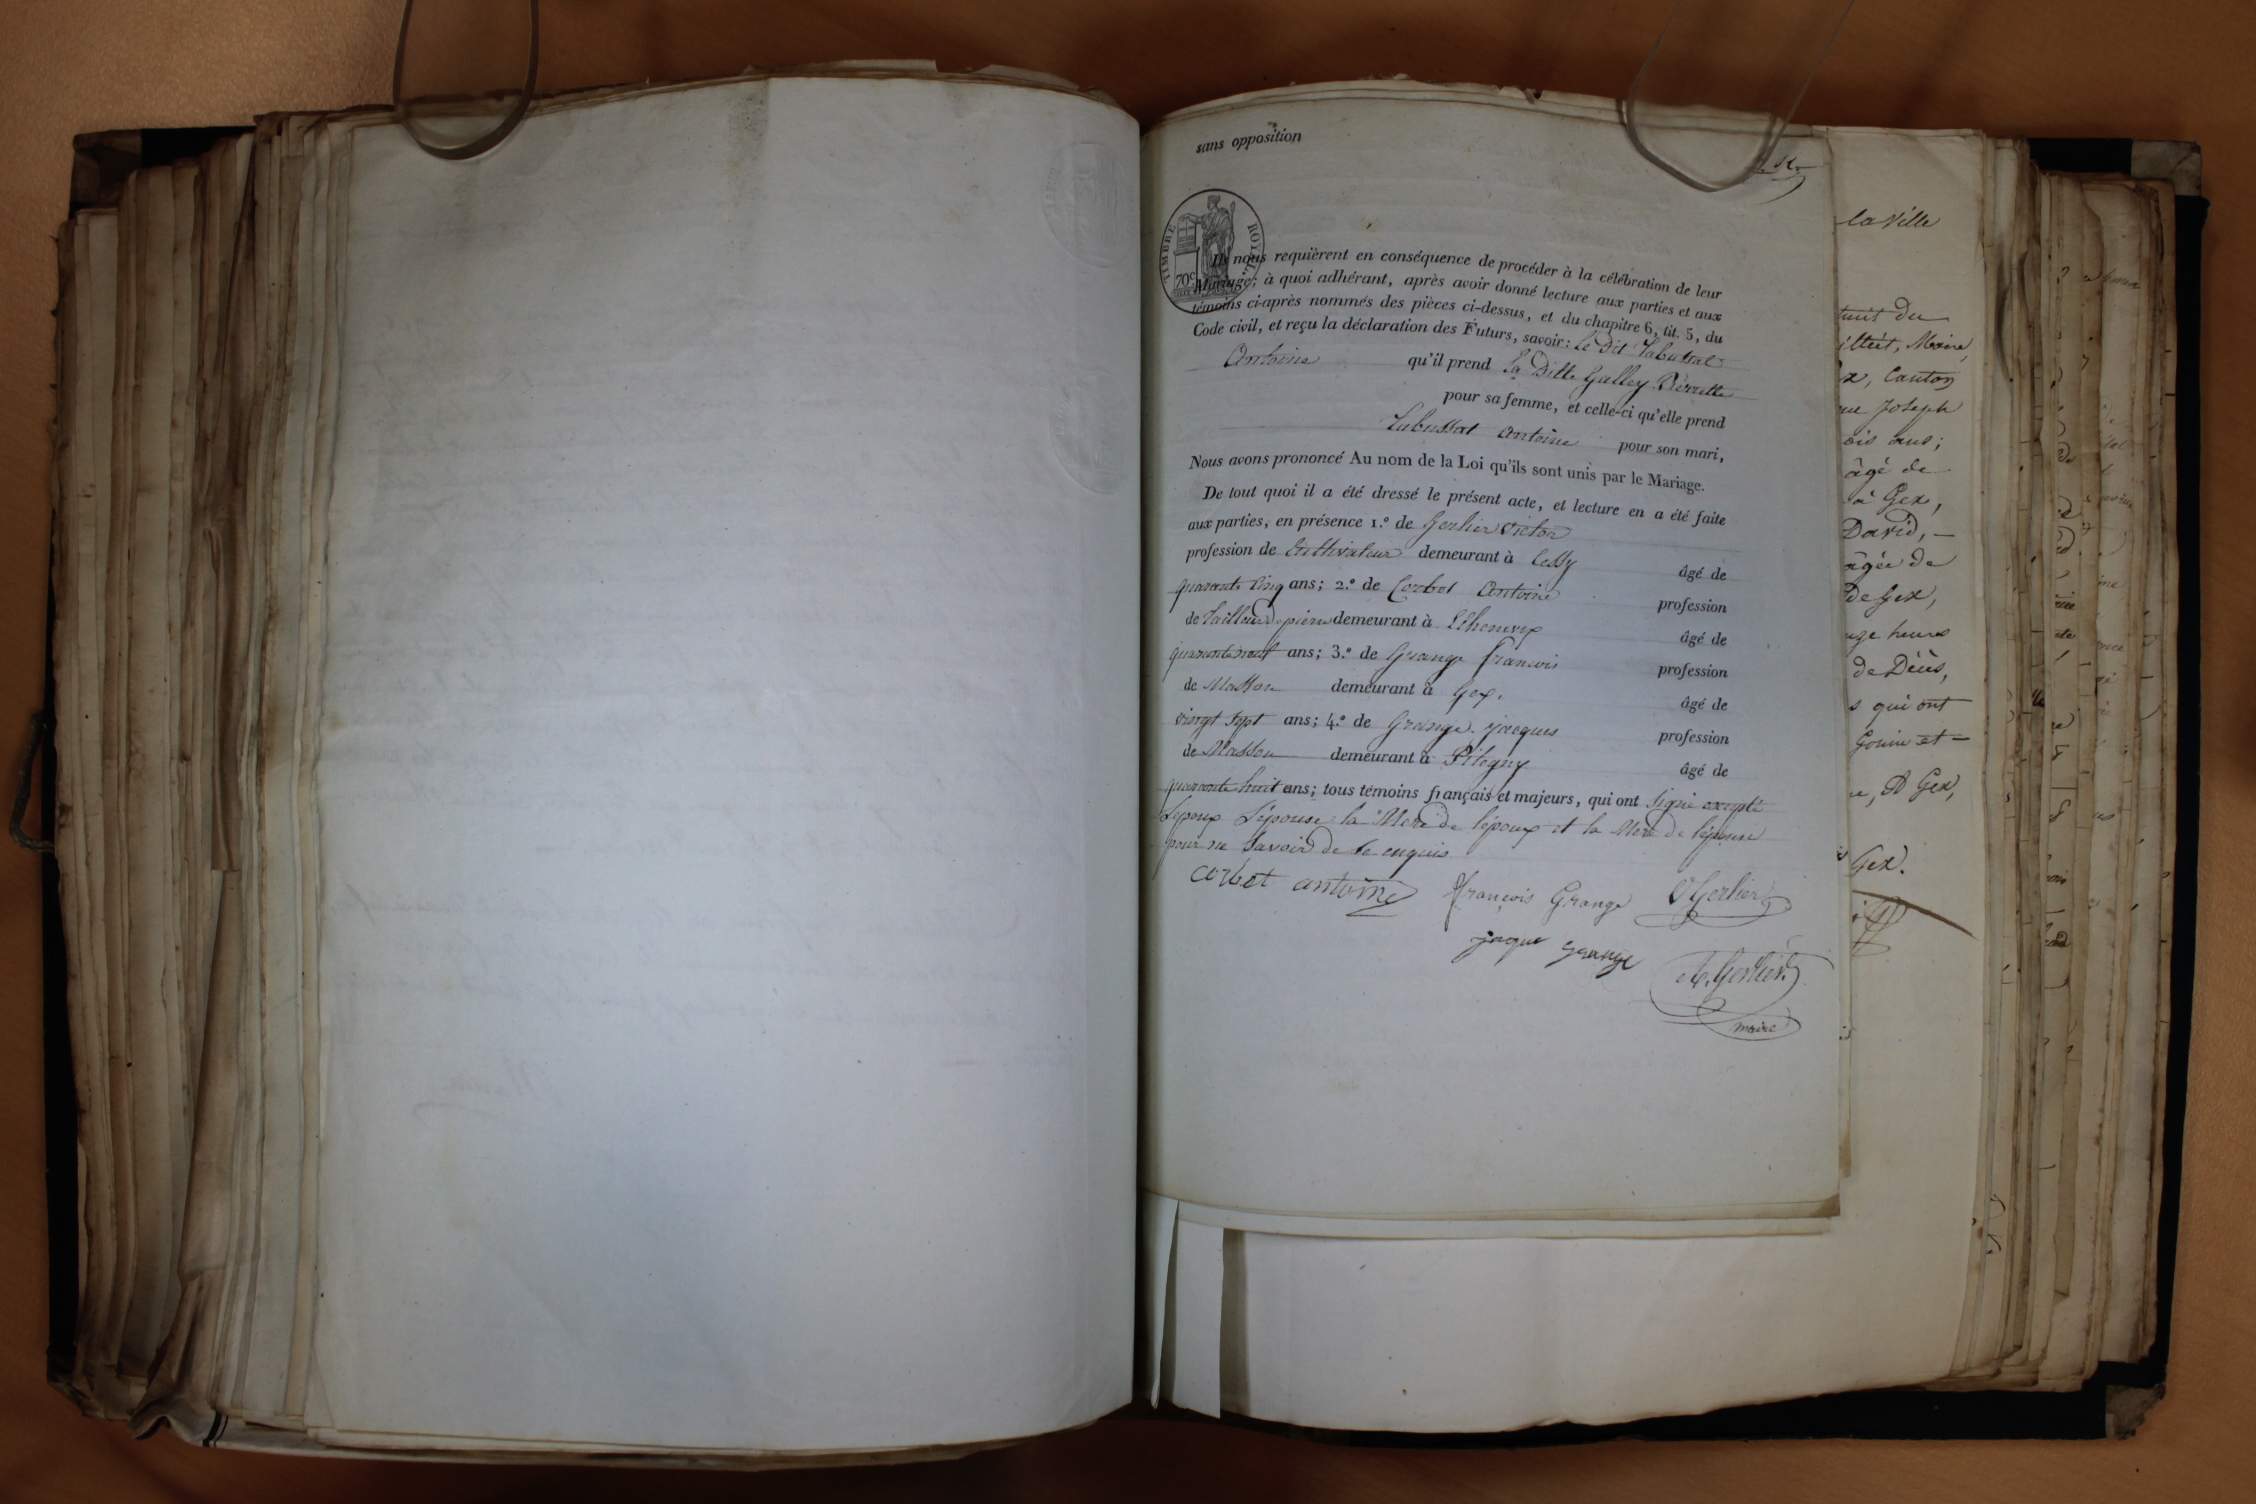 sans opposition
TIMBRE ROYAL
70c
Ils nous requièrent en conséquence de procéder à la célébration de leur
Mariage; à quoi adhérant, après avoir donné lecture aux parties et aux
témoins ci-après nommés des pièces ci-dessus, et du chapitre 6, tit. 5, du
Code civil, et reçu la déclaration des Futurs, savoir: le dit
Antoine qu'il prend la ditte Galley Pernette
pour sa femme, et celle-ci qu'elle prend
Antoine pour son mari,
Nous avons prononcé Au nom de la Loi qu'ils sont unis par le Mariage.
De tout quoi il a été dressé le présent acte, et lecture en a été faite
aux parties, en présence 1.º de Gerlier Victor
profession de Cultivateur demeurant à Cessy âgé de
quarante cinq ans; 2.º de Corbet Antoine profession
de Tailleur de pierre demeurant à Echenevex âgé de
quarante neuf ans; 3.º de Grange François profession
de Masson demeurant à Gex. âgé de
vingt sept ans; 4.º de Grange jacques profession
de Masson demeurant à âgé de
quarante huit ans; tous témoins français et majeurs, qui ont signé excepté
l'époux l'épouse la Mere de l'époux et la Mere de l'épouse
pour ne savoir de ce enquis
corbet antoine françois Grange V Gerlier
jaque grange
Gerlier
maire
la Ville
Maire,
x, Canton
Joseph
ois ans;
âgé de
à Gex,
David, —
âgée de
de Gex,
heures
de Deüs,
s qui ont
Gouin et —
A Gex,
Gex.